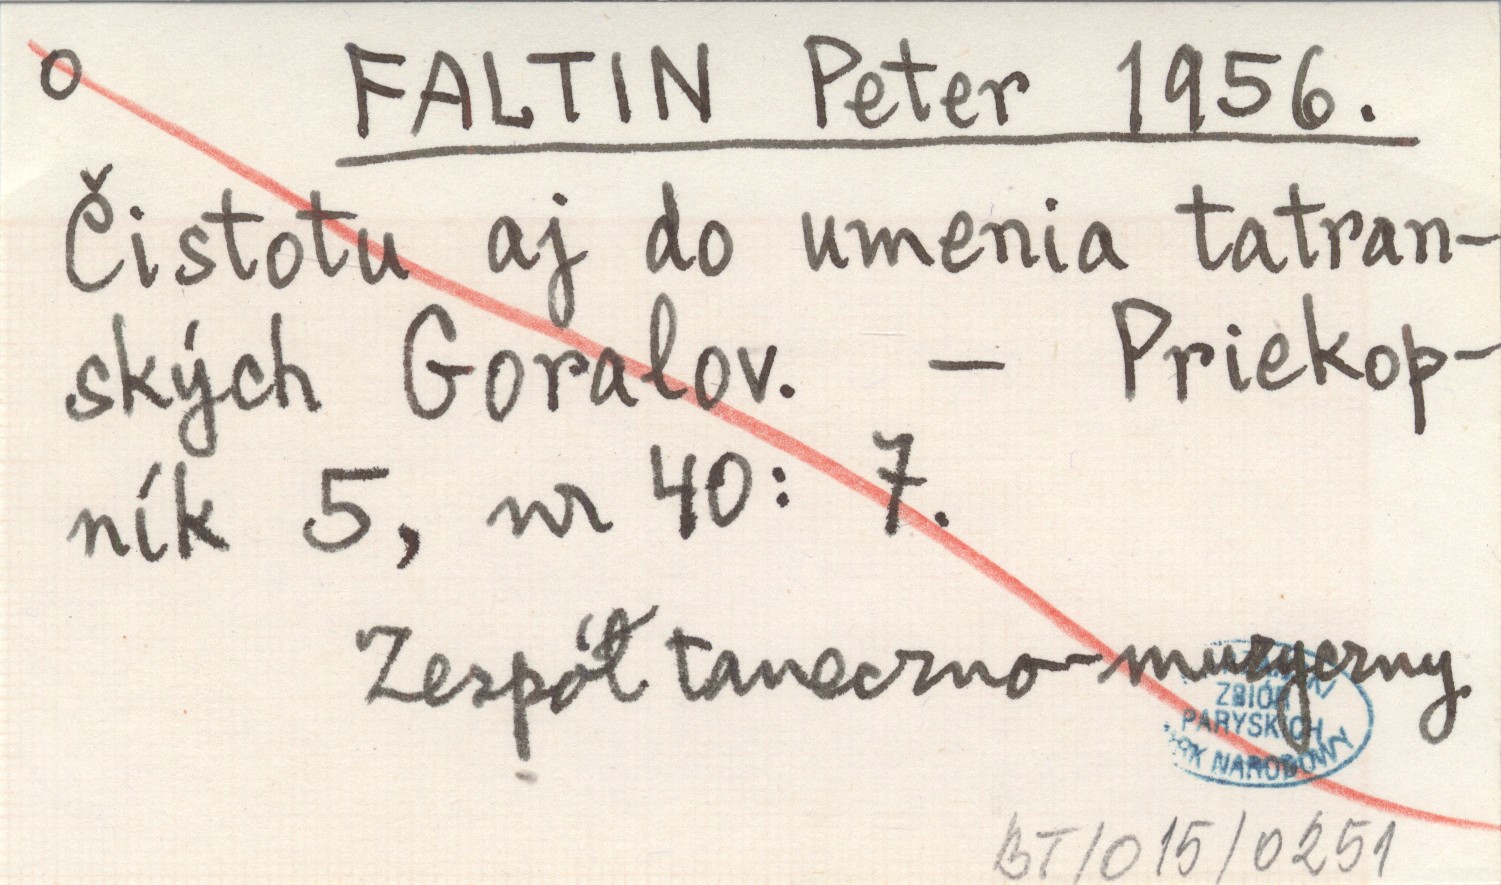 o FALTIN Peter 1956.
Čistotu aj do umenia tatran-
ských Goralov. – Priekop-
ník 5, nr 40: 7.
Zespół taneczno-muzyczny
ZBIÓR
PARYSKICH
NARODOWY
BT/015/0251